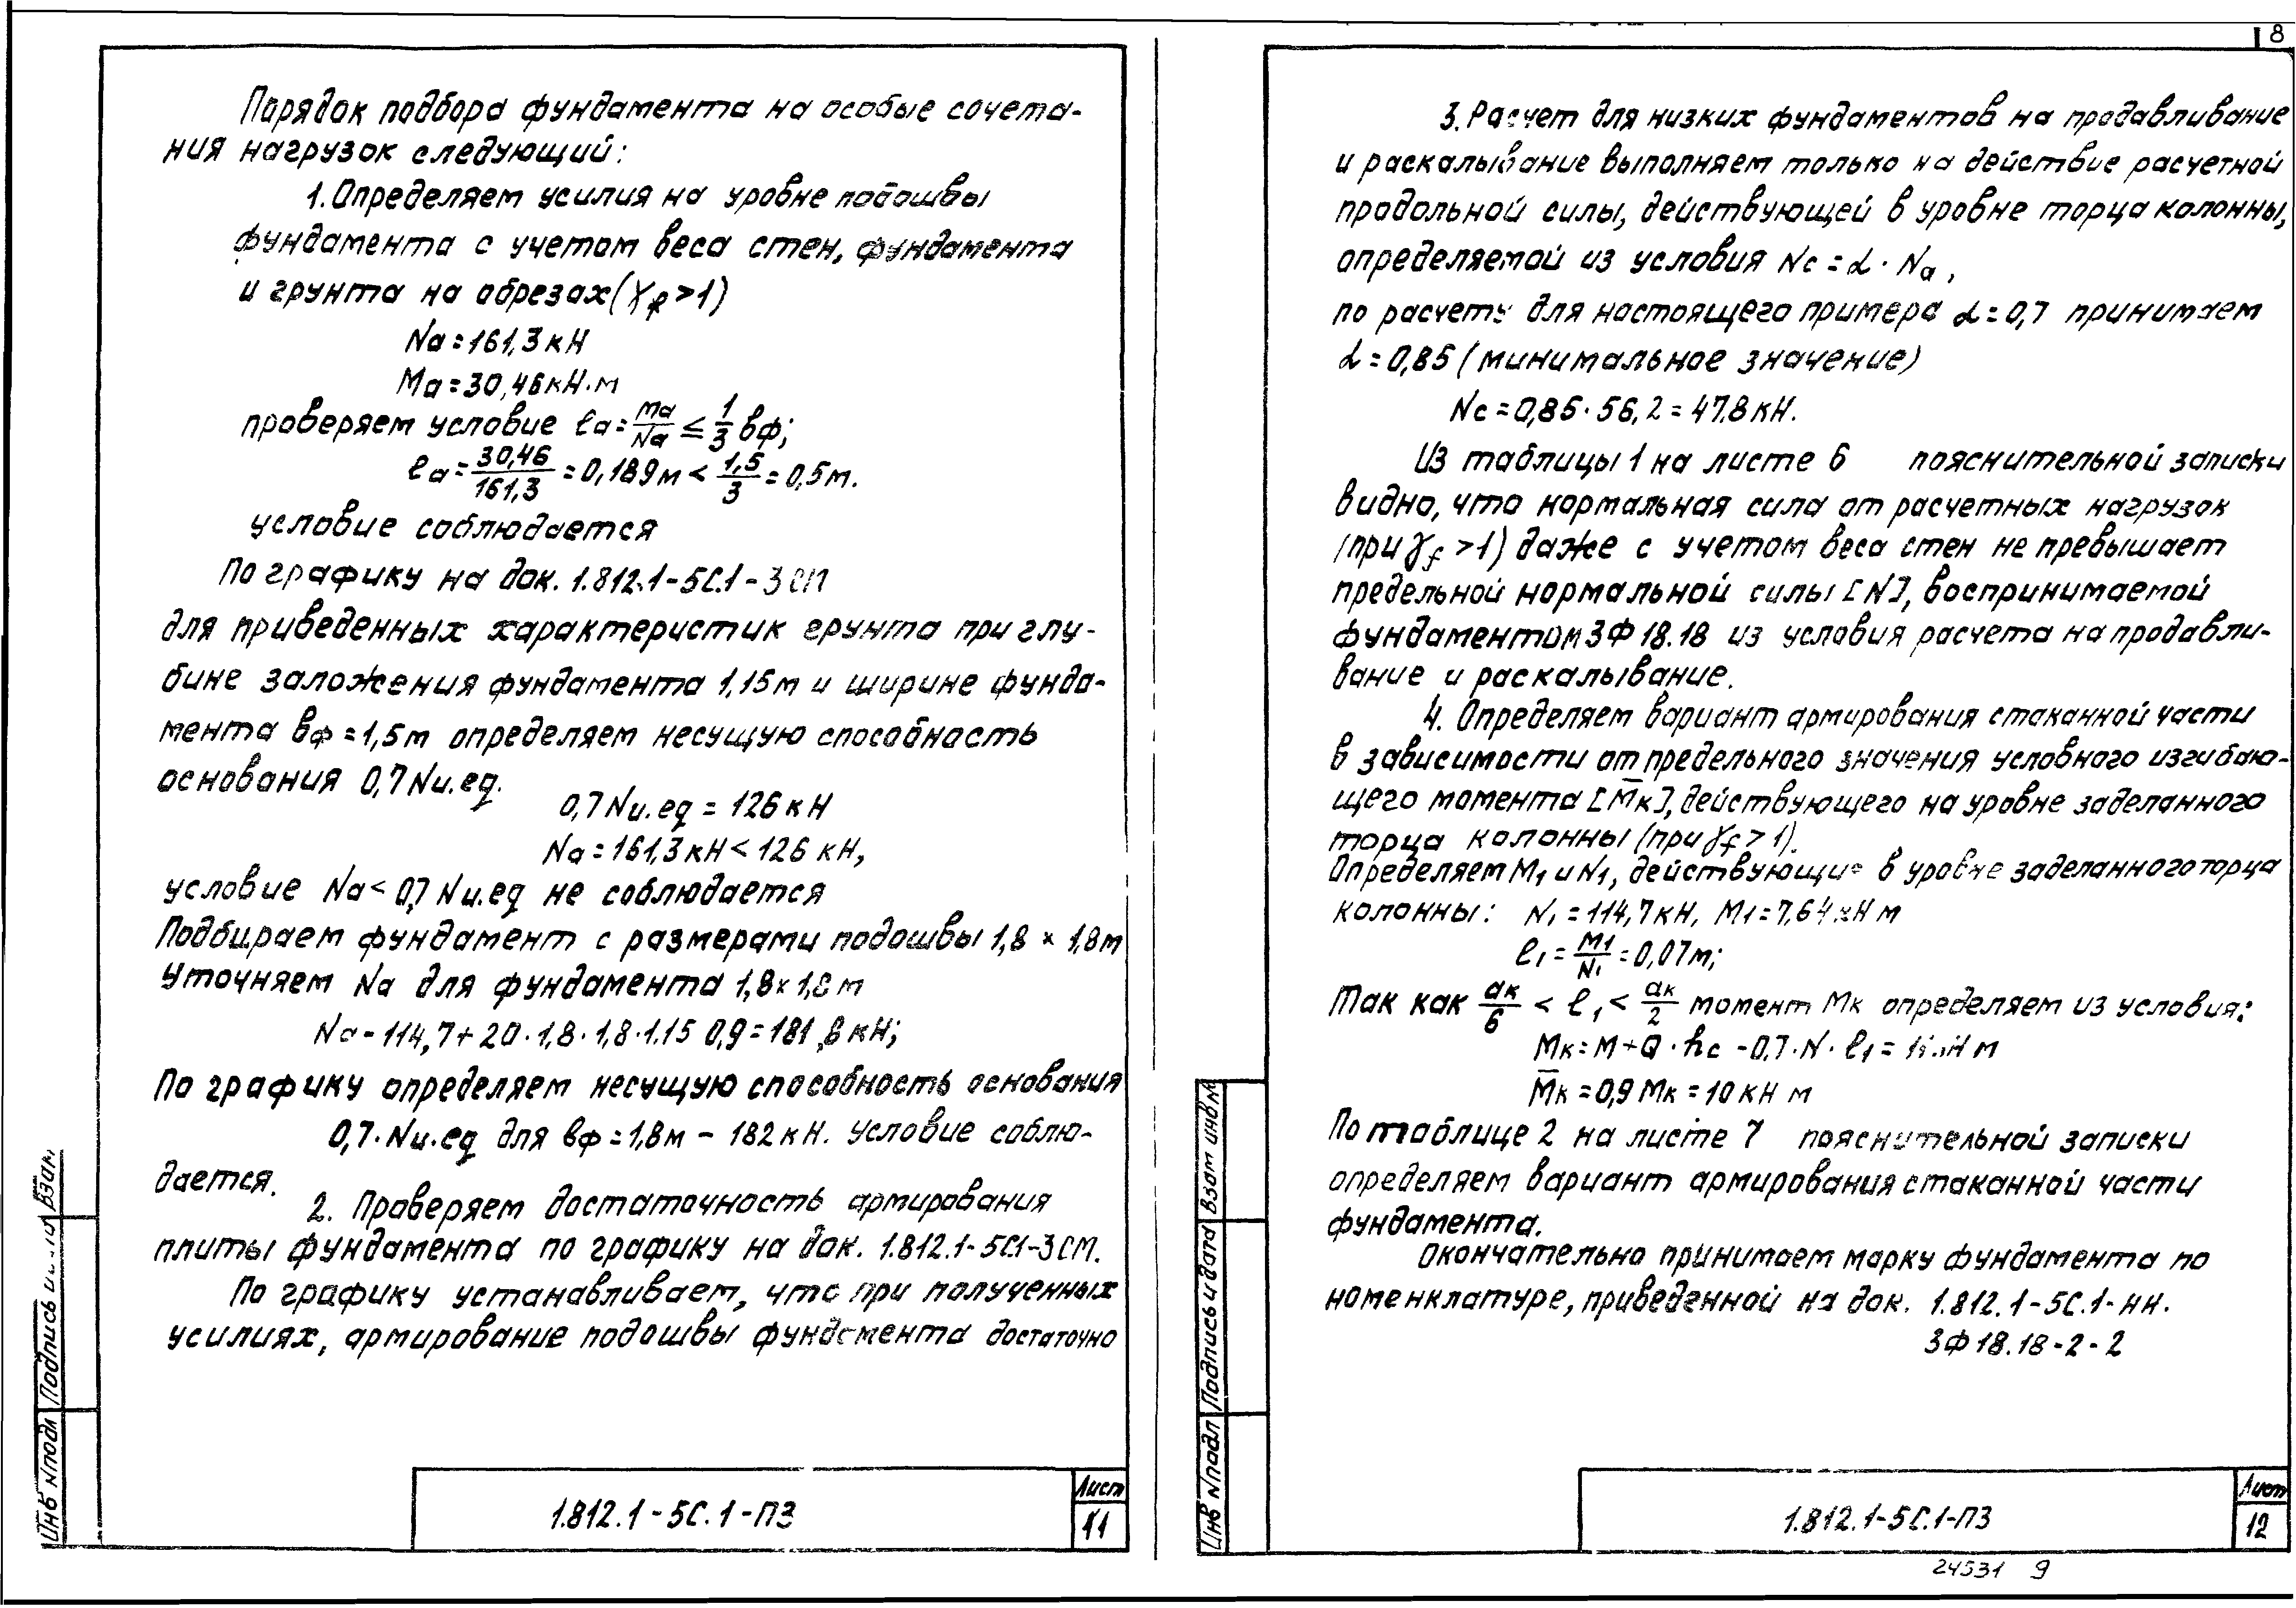 8
Порядок подбора фундамента на особые сочета-
ния нагрузок следующий:
1. Определяем усилия на уровне подошвы
фундамента с учетом веса стен, фундамента
и грунта на обрезах (γf >1)
Nа = 161,3 кН
Mа = 30,46 кН·м
проверяем условие ℓа = Mа/Nа ≤ 1/3 вф;
ℓа = 30,46/161,3 = 0,189 м < 1,5/3 = 0,5 м.
условие соблюдается
По графику на док. 1.812.1-5С.1-3СМ
для приведенных характеристик грунта при глу-
бине заложения фундамента 1,15 м и ширине фунда-
мента вф = 1,5 м определяем несущую способность
основания 0,7 Nu.eq.
0,7 Nu.eq = 126 кН
Nа = 161,3 кН < 126 кН,
условие Nа < 0,7 Nu.eq не соблюдается
Подбираем фундамент с размерами подошвы 1,8 × 1,8 м
Уточняем Nа для фундамента 1,8 × 1,8 м
Nа - 114,7 + 20·1,8·1,8·1.15 0,9 = 181,8 кН;
По графику определяем несущую способность основания
0,7·Nu.eq для вф = 1,8 м - 182 кН. Условие соблю-
дается.
2. Проверяем достаточность армирования
плиты фундамента по графику на док. 1.812.1-5С.1-3СМ.
По графику устанавливает, что при полученных
усилиях, армирование подошвы фундамента достаточно
1.812.1-5С.1-ПЗ
Лист
11
Инв N подл Подпись и дата Взам
3. Расчет для низких фундаментов на продавливание
и раскалывание выполняем только на действие расчетной
продольной силы, действующей в уровне торца колонны,
определяемой из условия Nс = α · Nа,
по расчету для настоящего примера α = 0,7 принимаем
α = 0,85 (минимальное значение)
Nс = 0,85·56,2 = 47,8 кН.
Из таблицы 1 на листе 6 пояснительной записки
видно, что нормальная сила от расчетных нагрузок
(при γf >1) даже с учетом веса стен не превышает
предельной нормальной силы [N], воспринимаемой
фундаментом 3Ф 18.18 из условия расчета на продавли-
вание и раскалывание.
4. Определяем вариант армирования стаканной части
в зависимости от предельного значения условного изгибаю-
щего момента [M̅к], действующего на уровне заделанного
торца колонны (при γf > 1).
Определяем M1 и N1, действующие в уровне заделанного торца
колонны: N1 = 114,7 кН, M1 = 7,64 кН м
ℓ1 = M1/N1 = 0,07 м;
Так как aк/6 < ℓ1 < aк/2 момент Mк определяем из условия:
Mк = M + Q · hс - 0,7·N·ℓ1 = кН м
M̅к = 0,9 Mк = 10 кН м
По таблице 2 на листе 7 пояснительной записки
определяем вариант армирования стаканной части
фундамента.
Окончательно принимаем марку фундамента по
номенклатуре, приведенной на док. 1.812.1-5С.1-НН.
3Ф 18.18-2-2
1.812.1-5С.1-ПЗ
Лист
12
Инв N подл Подпись и дата Взам инв N
24531 9